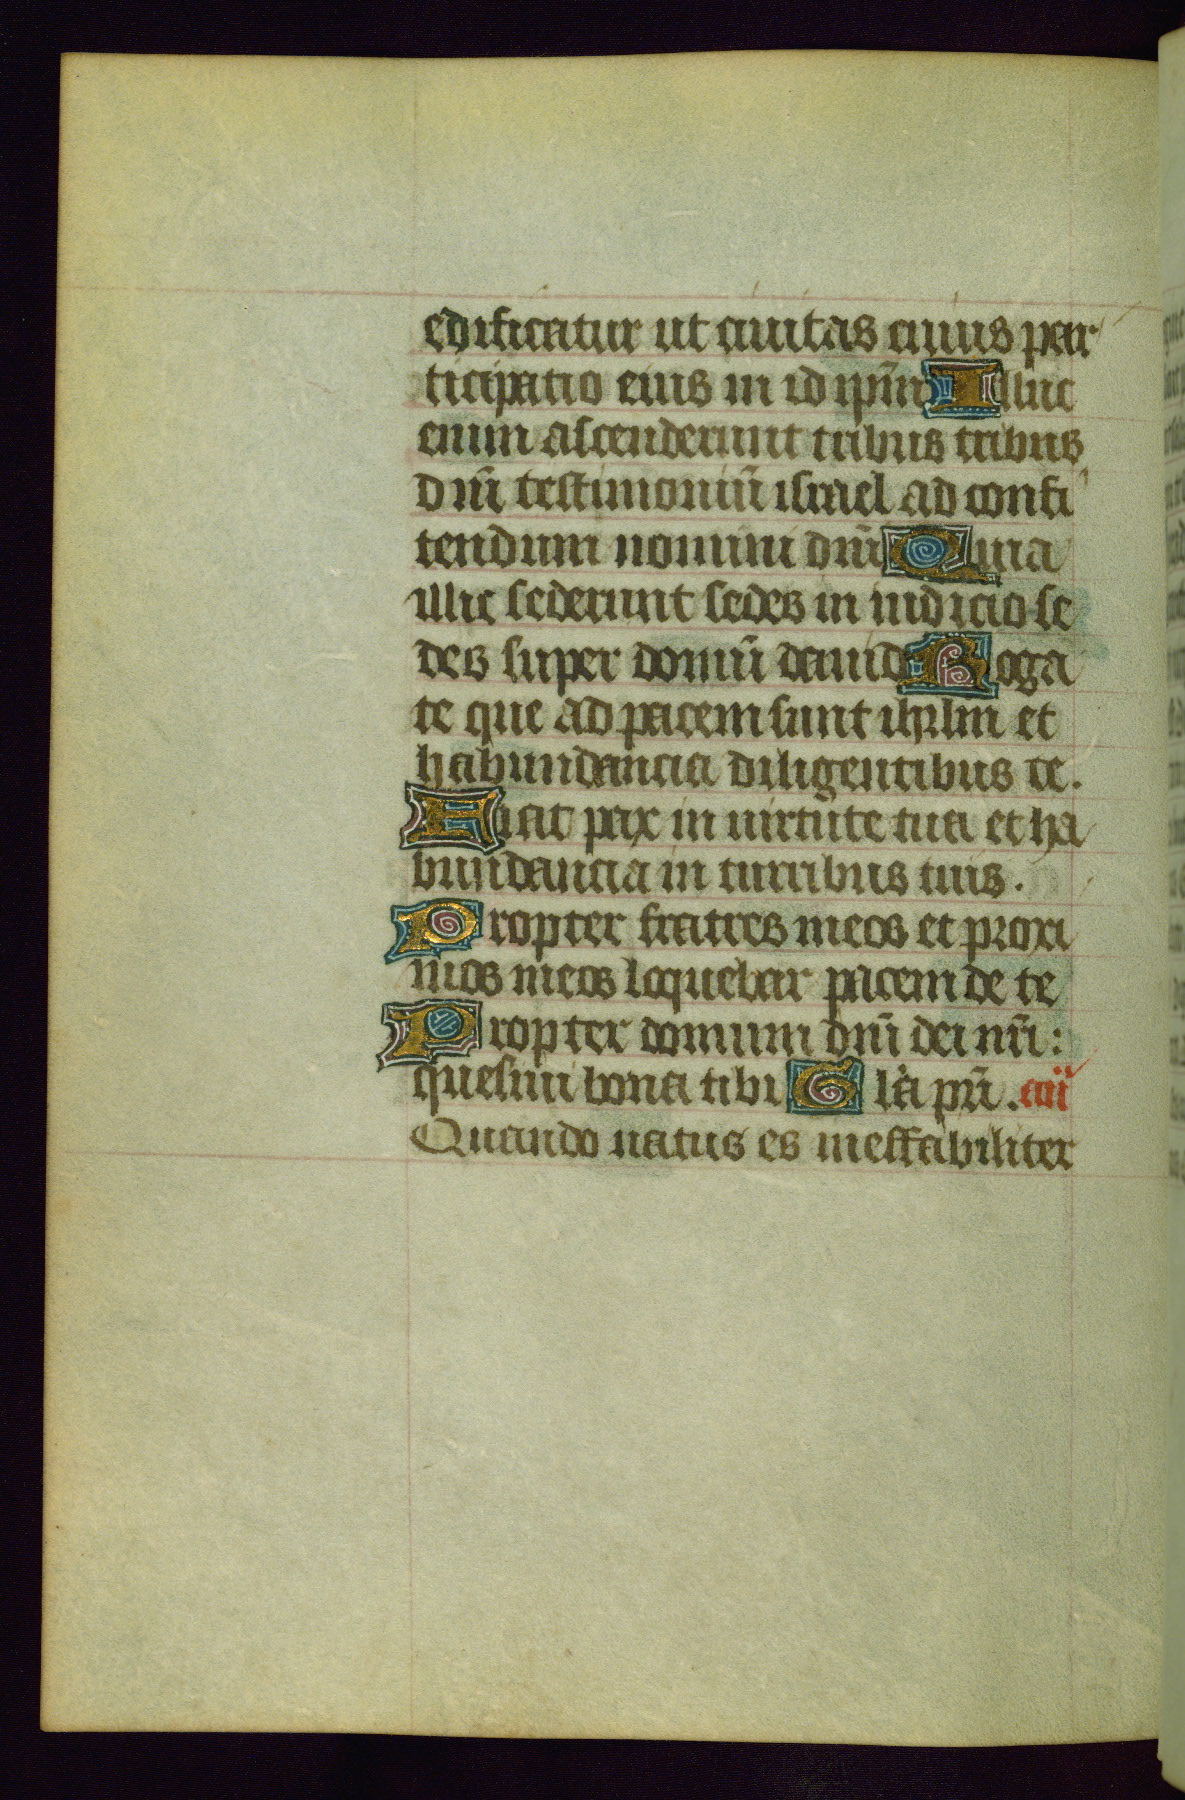 edificatur ut ciuitas cuius par
ticipatio eius in id ip̄m Illuc
enim ascenderunt tribus tribus
dn̄i testimoniū israel ad confi
tendum nomini dn̄i Quia
illic sederunt sedes in iudicio se
des super domū dauid Roga
te que ad pacem sunt ihrlm et
habundancia diligentibus te.
Fiat pax in uirtute tua et ha
bundancia in turribus tuis.
Propter fratres meos et proxi
mos meos loquebar pacem de te
Propter domum dn̄i dei nr̄i:
quesiui bona tibi Gl'a pr̄i. an̄
Quando natus es ineffabiliter